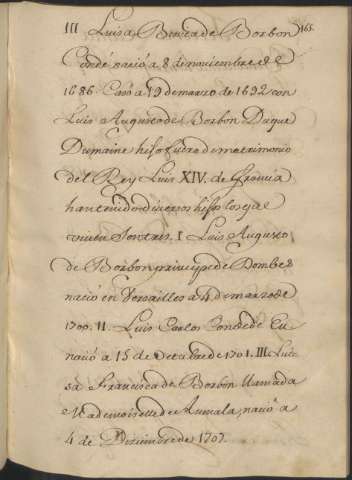 165.
III Luisa Benita de Borbon
Condé nació a 8 de noviembre de
1686 Casó a 19 de marzo de 1692 con
Luis Augusto de Borbon Duque
Dumaine hijo fuera de metrimonio
del Rey Luis XIV. de Francia
han tenido diversos hijos los que
viven son tres. I Luis Augusto
de Borbon principe de Dombes
nació en Versailles a 4 de marzo de
1700. II. Luis Carlos Conde de Eu
nació a 15 de Octubre de 1701. III. Lui-
sa Francisca de Borbon llamada
Mademoiselle de Aumala, nació a
4 de Diziembre de 1707.